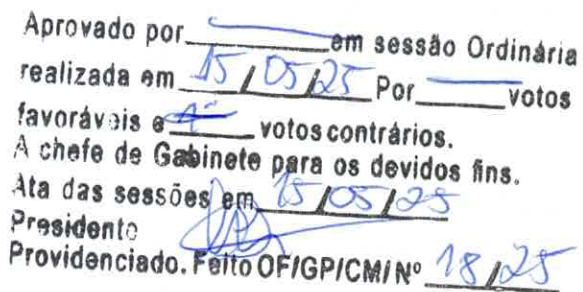 Aprovado por em sessão Ordinária
realizada em 15 / 05 / 25 Por votos
favoráveis e votos contrários.
A chefe de Gabinete para os devidos fins.
Ata das sessões em 15 / 05 / 25
Presidente
Providenciado. Feito OF/GP/CMI Nº 18 / 25